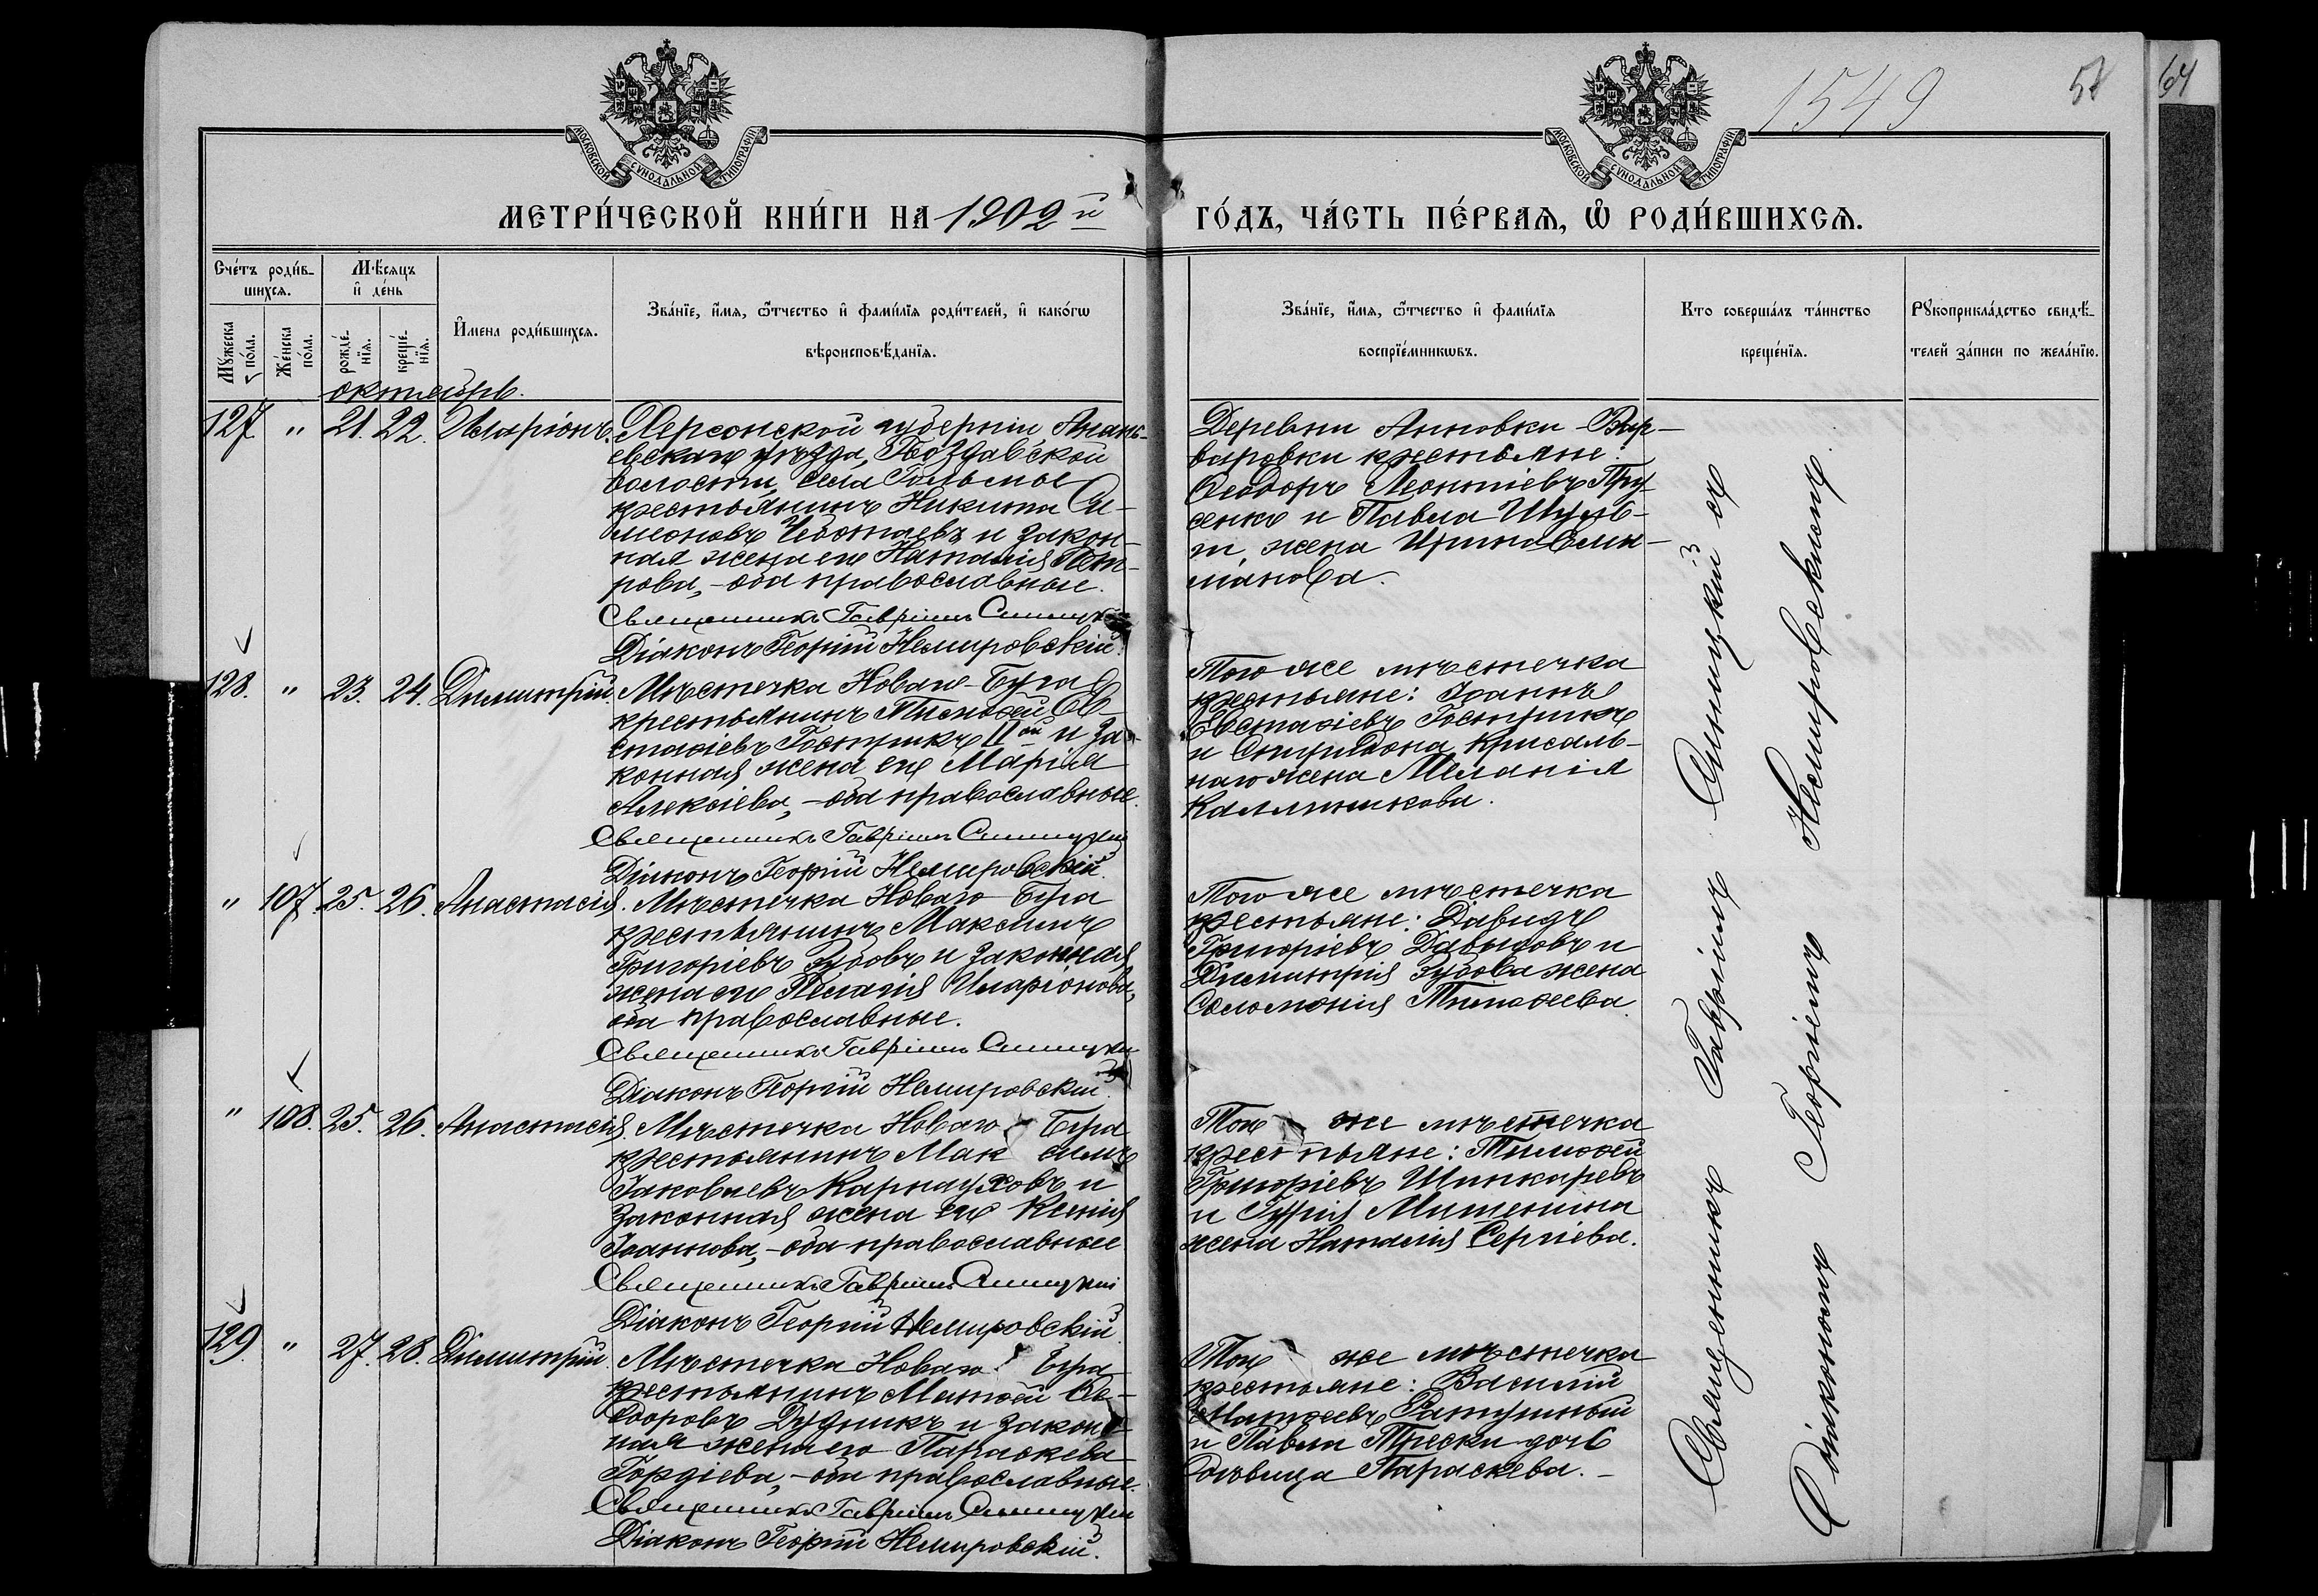 1549
57
64
МОСКОВСКОЙ СѴНОДАЛЬНОЙ ТИПОГРАФІИ
МОСКОВСКОЙ СѴНОДАЛЬНОЙ ТИПОГРАФІИ
МЕТРИ́ЧЕСКОЙ КНИ́ГИ НА 1902й
ГО́ДЪ, ЧА́СТЬ ПЕ́РВАЯ, Ѡ҆ РОДИ́ВШИХСЯ.
Сче́тъ роди́в-
шихся.
Мꙋ́жеска по́ла.
Же́нска по́ла.
Мѣ́сяцъ и҆ де́нь
рожде́-нїя.
креще́-нїя.
И҆мена̀ роди́вшихся.
Зва́нїе, и҆́мя, ѻ҆́тчество и҆ фами́лїя роди́телей, и҆ како́гѡ
вѣроисповѣ́данїя.
Зва́нїе, и҆́мя, ѻ҆́тчество и҆ фами́лїя
воспрїе́мникѡвъ.
Кто̀ соверша́лъ та́инство
креще́нїя.
Рꙋкоприкла́дство свидѣ́-
телей за́писи по жела́нїю.
октября.
127 " 21. 22. Иларіонъ.
Херсонской губерніи Анань-
евскаго уѣзда, Гвоздавской
волости, села Гольмы
крестьянинъ Никита Си-
меоновъ Чеботаевъ и закон-
ная жена его Наталія Пет-
рова, - оба православные.
Священникъ Гавріилъ Синицкій
Діаконъ Георгій Немировскій.
Деревни Анновки-Вар-
варовки крестьяне:
Ѳеодоръ Леонтіевъ Пру-
сенко и Павла Шуль-
ги жена Ирина Еми-
ліанова.
128. " 23. 24. Димитрій.
Мѣстечка Новаго-Буга
крестьянинъ Тимоѳей Ев-
стаѳіевъ Гострикъ IIой и за-
конная жена его Марія
Алексіева, - оба православные.
Священникъ Гавріилъ Синицкій
Діаконъ Георгій Немировскій.
Того же мѣстечка
крестьяне: Іоаннъ
Евстаѳіевъ Гострикъ
и Спиридона Крисаль-
наго жена Меланія
Каллиникова.
" 107. 25. 26. Анастасія.
Мѣстечка Новаго Буга
крестьянинъ Максимъ
Григоріевъ Зубовъ и законная
жена его Пелагія Иларіонова,
оба православные.
Священникъ Гавріилъ Синицкій
Діаконъ Георгій Немировскій.
Того же мѣстечка
крестьяне: Давидъ
Григоріевъ Давыдовъ и
Димитрія Зубова жена
Соломонія Тимоѳеева.
" 108. 25. 26. Анастасія.
Мѣстечка Новаго Буга
крестьянинъ Максимъ
Іаковлевъ Карнауховъ и
законная жена его Ксенія
Іоаннова, - оба православные
Священникъ Гавріилъ Синицкій
Діаконъ Георгій Немировскій.
Того же мѣстечка
крестьяне: Тимоѳей
Григоріевъ Шинкаревъ
и Гурія Мишенина
жена Наталія Сергіева.
129. " 27. 28. Димитрій.
Мѣстечка Новаго Буга
крестьянинъ Матѳей Ѳе-
одоровъ Дудникъ и закон-
ная жена его Параскева
Гордіева, - оба православные.
Священникъ Гавріилъ Синицкій
Діаконъ Георгій Немировскій.
Того же мѣстечка
крестьяне: Василій
Матѳеевъ Ратушный
и Павла Трески дочь
дѣвица Параскева. -
Священникъ Гавріилъ Синицкій съ
Діакономъ Георгіемъ Немировскимъ.